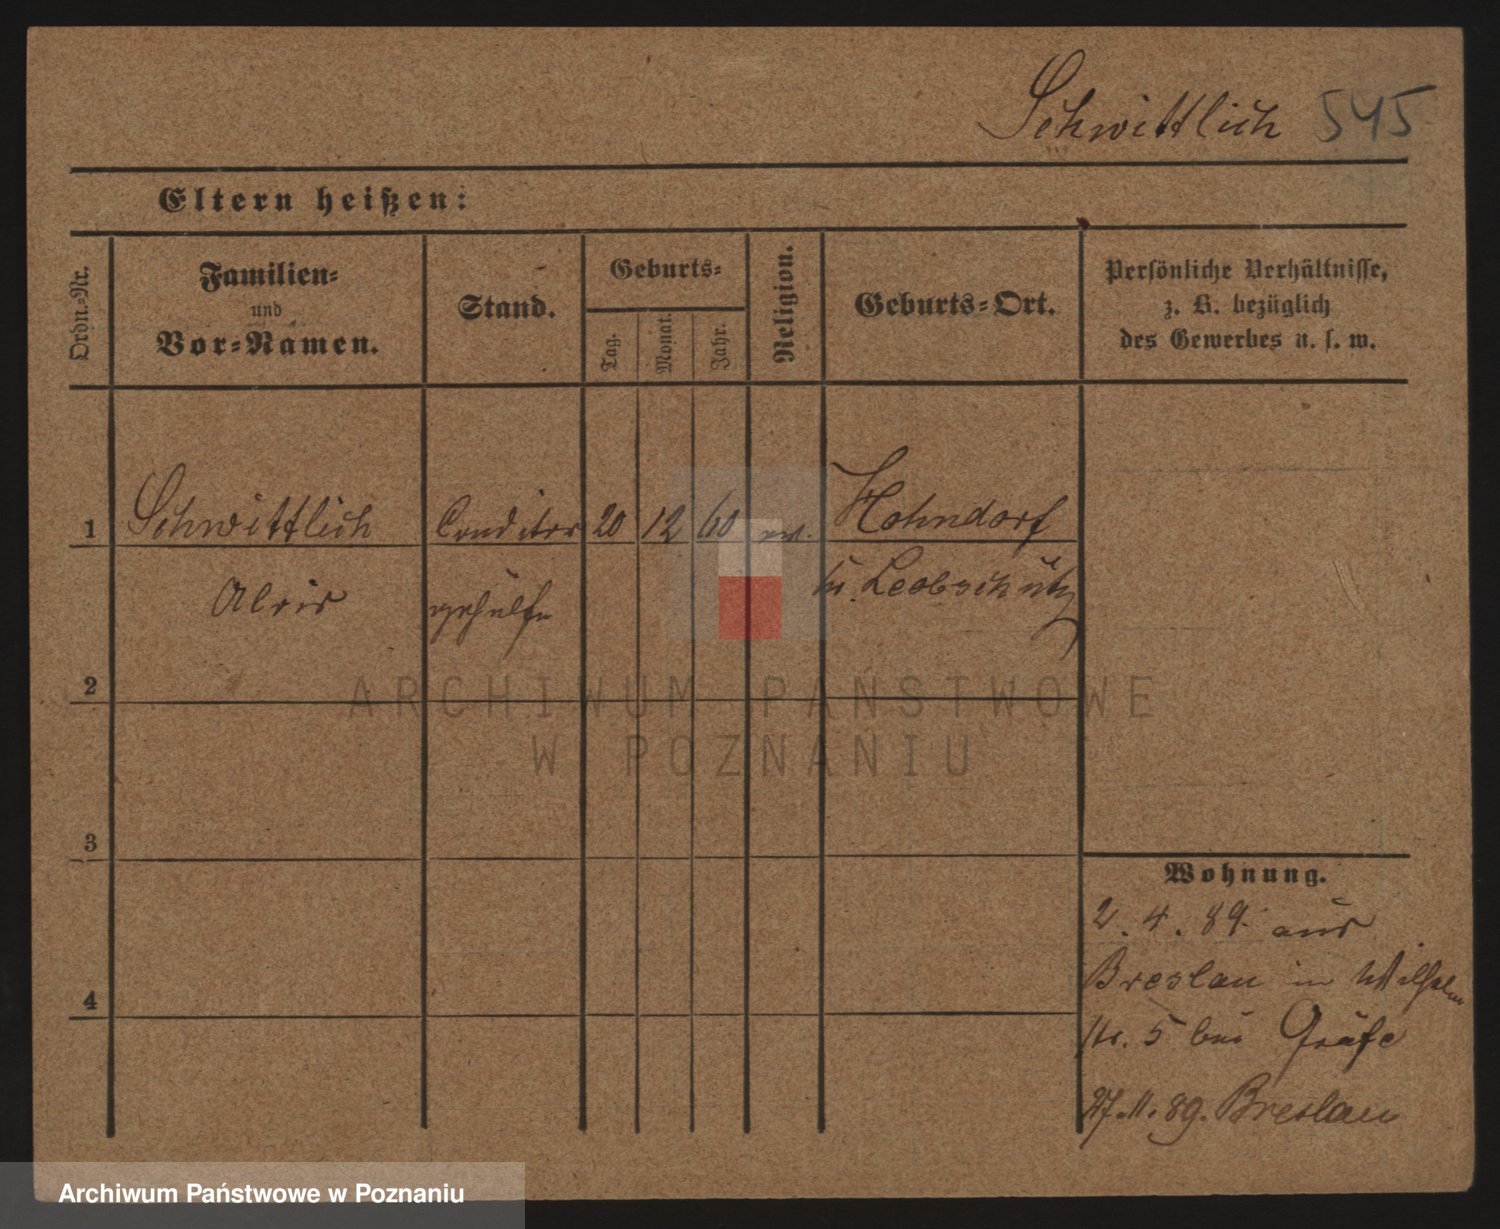 Schwittlich 545
Eltern heißen:
Ordn.-Nr.
Familien-
und
Vor-Namen.
Stand.
Geburts-
Tag.
Monat.
Jahr.
Religion.
Geburts-Ort.
Persönliche Verhältnisse,
z. B. bezüglich
des Gewerbes u. s. w.
1 Schwittlich Conditor 20 12 60 Hohndorf
Alois gehülfe Kr. Leobschütz
2
3
4
Wohnung.
2. 4. 89. aus
Breslau in Wilhelm
str. 5 bei Gräfe
27. 11. 89. Breslau
ARCHIWUM PAŃSTWOWE
W POZNANIU
Archiwum Państwowe w Poznaniu